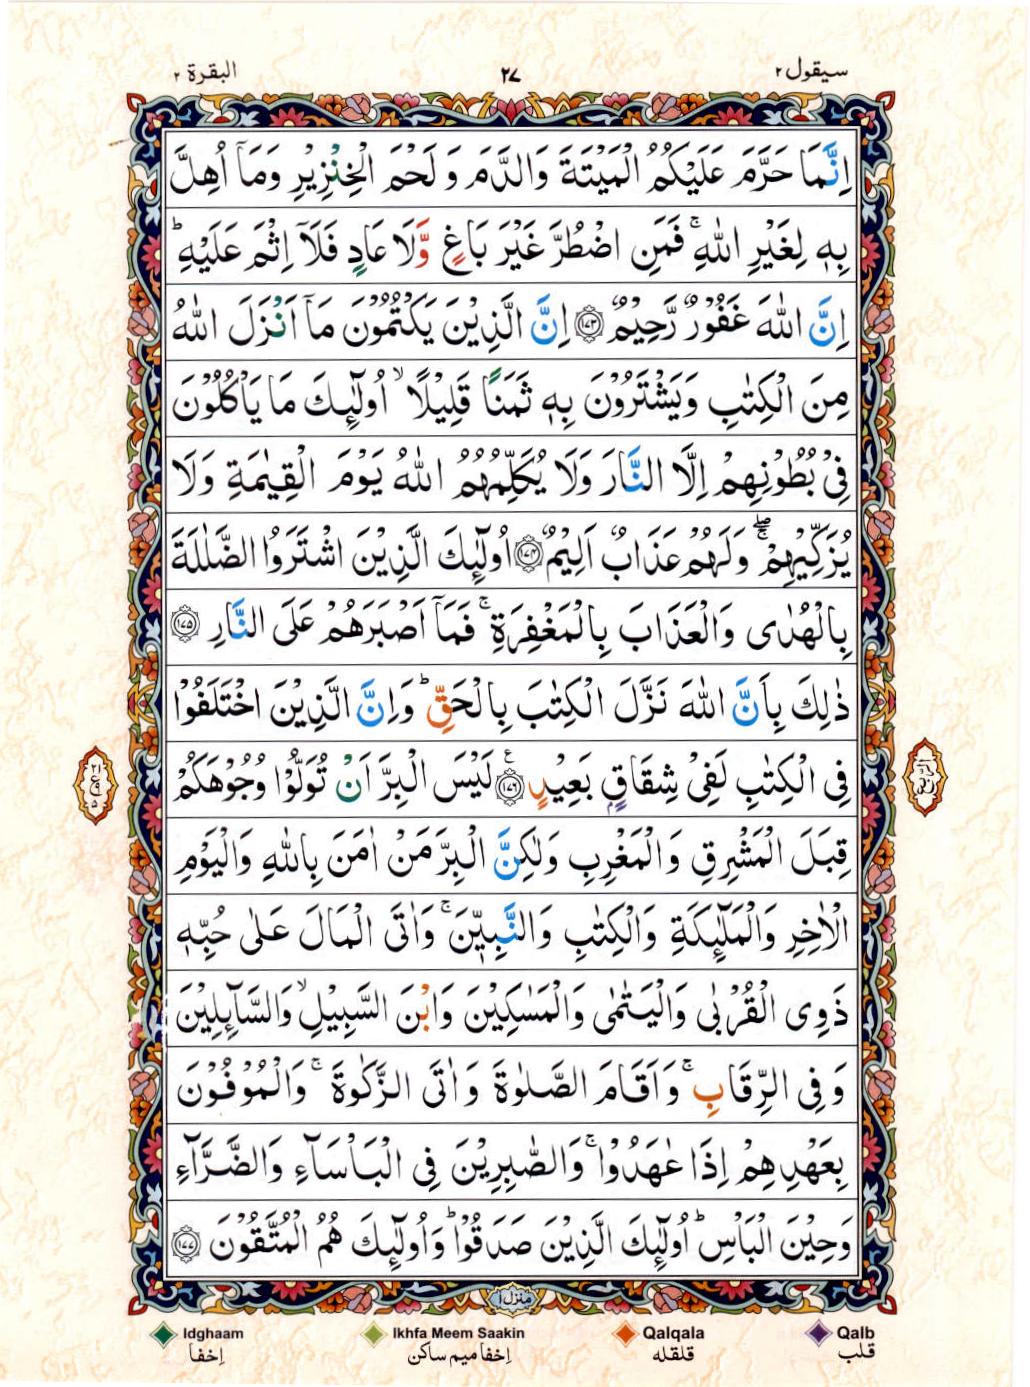 سيقول ٢
٢٧
البقرة ٢
اِنَّمَا حَرَّمَ عَلَيْكُمُ الْمَيْتَةَ وَالدَّمَ وَ لَحْمَ الْخِنْزِيْرِ وَمَاۤ اُهِلَّ
بِهٖ لِغَيْرِ اللّٰهِ ۚ فَمَنِ اضْطُرَّ غَيْرَ بَاغٍ وَّلَا عَادٍ فَلَاۤ اِثْمَ عَلَيْهِ ؕ
اِنَّ اللّٰهَ غَفُوْرٌ رَّحِيْمٌ ۝١٧٣ اِنَّ الَّذِيْنَ يَكْتُمُوْنَ مَاۤ اَنْزَلَ اللّٰهُ
مِنَ الْكِتٰبِ وَيَشْتَرُوْنَ بِهٖ ثَمَنًا قَلِيْلًا ۙ اُولٰٓئِكَ مَا يَاْكُلُوْنَ
فِيْ بُطُوْنِهِمْ اِلَّا النَّارَ وَلَا يُكَلِّمُهُمُ اللّٰهُ يَوْمَ الْقِيٰمَةِ وَلَا
يُزَكِّيْهِمْ ۖۚ وَلَهُمْ عَذَابٌ اَلِيْمٌ ۝١٧٤ اُولٰٓئِكَ الَّذِيْنَ اشْتَرَوُا الضَّلٰلَةَ
بِالْهُدٰى وَالْعَذَابَ بِالْمَغْفِرَةِ ۚ فَمَاۤ اَصْبَرَهُمْ عَلَى النَّارِ ۝١٧٥
ذٰلِكَ بِاَنَّ اللّٰهَ نَزَّلَ الْكِتٰبَ بِالْحَقِّ ؕ وَاِنَّ الَّذِيْنَ اخْتَلَفُوْا
فِي الْكِتٰبِ لَفِيْ شِقَاقٍۭ بَعِيْدٍ ۝١٧٦ ع لَيْسَ الْبِرَّ اَنْ تُوَلُّوْا وُجُوْهَكُمْ
الربع
٢١
ع
٥
قِبَلَ الْمَشْرِقِ وَالْمَغْرِبِ وَلٰكِنَّ الْبِرَّ مَنْ اٰمَنَ بِاللّٰهِ وَالْيَوْمِ
الْاٰخِرِ وَالْمَلٰٓئِكَةِ وَالْكِتٰبِ وَالنَّبِيّٖنَ ۚ وَاٰتَى الْمَالَ عَلٰى حُبِّهٖ
ذَوِي الْقُرْبٰى وَالْيَتٰمٰى وَالْمَسٰكِيْنَ وَابْنَ السَّبِيْلِ ۙ وَالسَّآئِلِيْنَ
وَ فِي الرِّقَابِ ۚ وَ اَقَامَ الصَّلٰوةَ وَ اٰتَى الزَّكٰوةَ ۚ وَالْمُوْفُوْنَ
بِعَهْدِهِمْ اِذَا عٰهَدُوْا ۚ وَالصّٰبِرِيْنَ فِي الْبَاْسَآءِ وَالضَّرَّآءِ
وَحِيْنَ الْبَاْسِ ؕ اُولٰٓئِكَ الَّذِيْنَ صَدَقُوْا ؕ وَاُولٰٓئِكَ هُمُ الْمُتَّقُوْنَ ۝١٧٧
منزل ١
Idghaam
اِخفا
Ikhfa Meem Saakin
اِخفا ميم ساكن
Qalqala
قلقله
Qalb
قلب